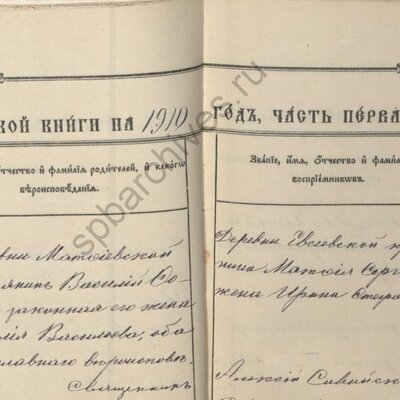 КОЙ КНИГИ НА 1910 ГОДЪ, ЧАСТЬ ПЕРВА
отчество и фамилія родителей, и какого
вѣроисповѣданія.
Званіе, имя, отчество и фамил
воспріемниковъ.
вни Матвіевской
янинъ Василій Со
законная его жена
лія Васильева, оба
славнаго вѣроисповѣ.
Священникъ
Деревни Евсеевской кр
нина Матвія Серг
жена Ирина
Алексій
spbarchives.ru